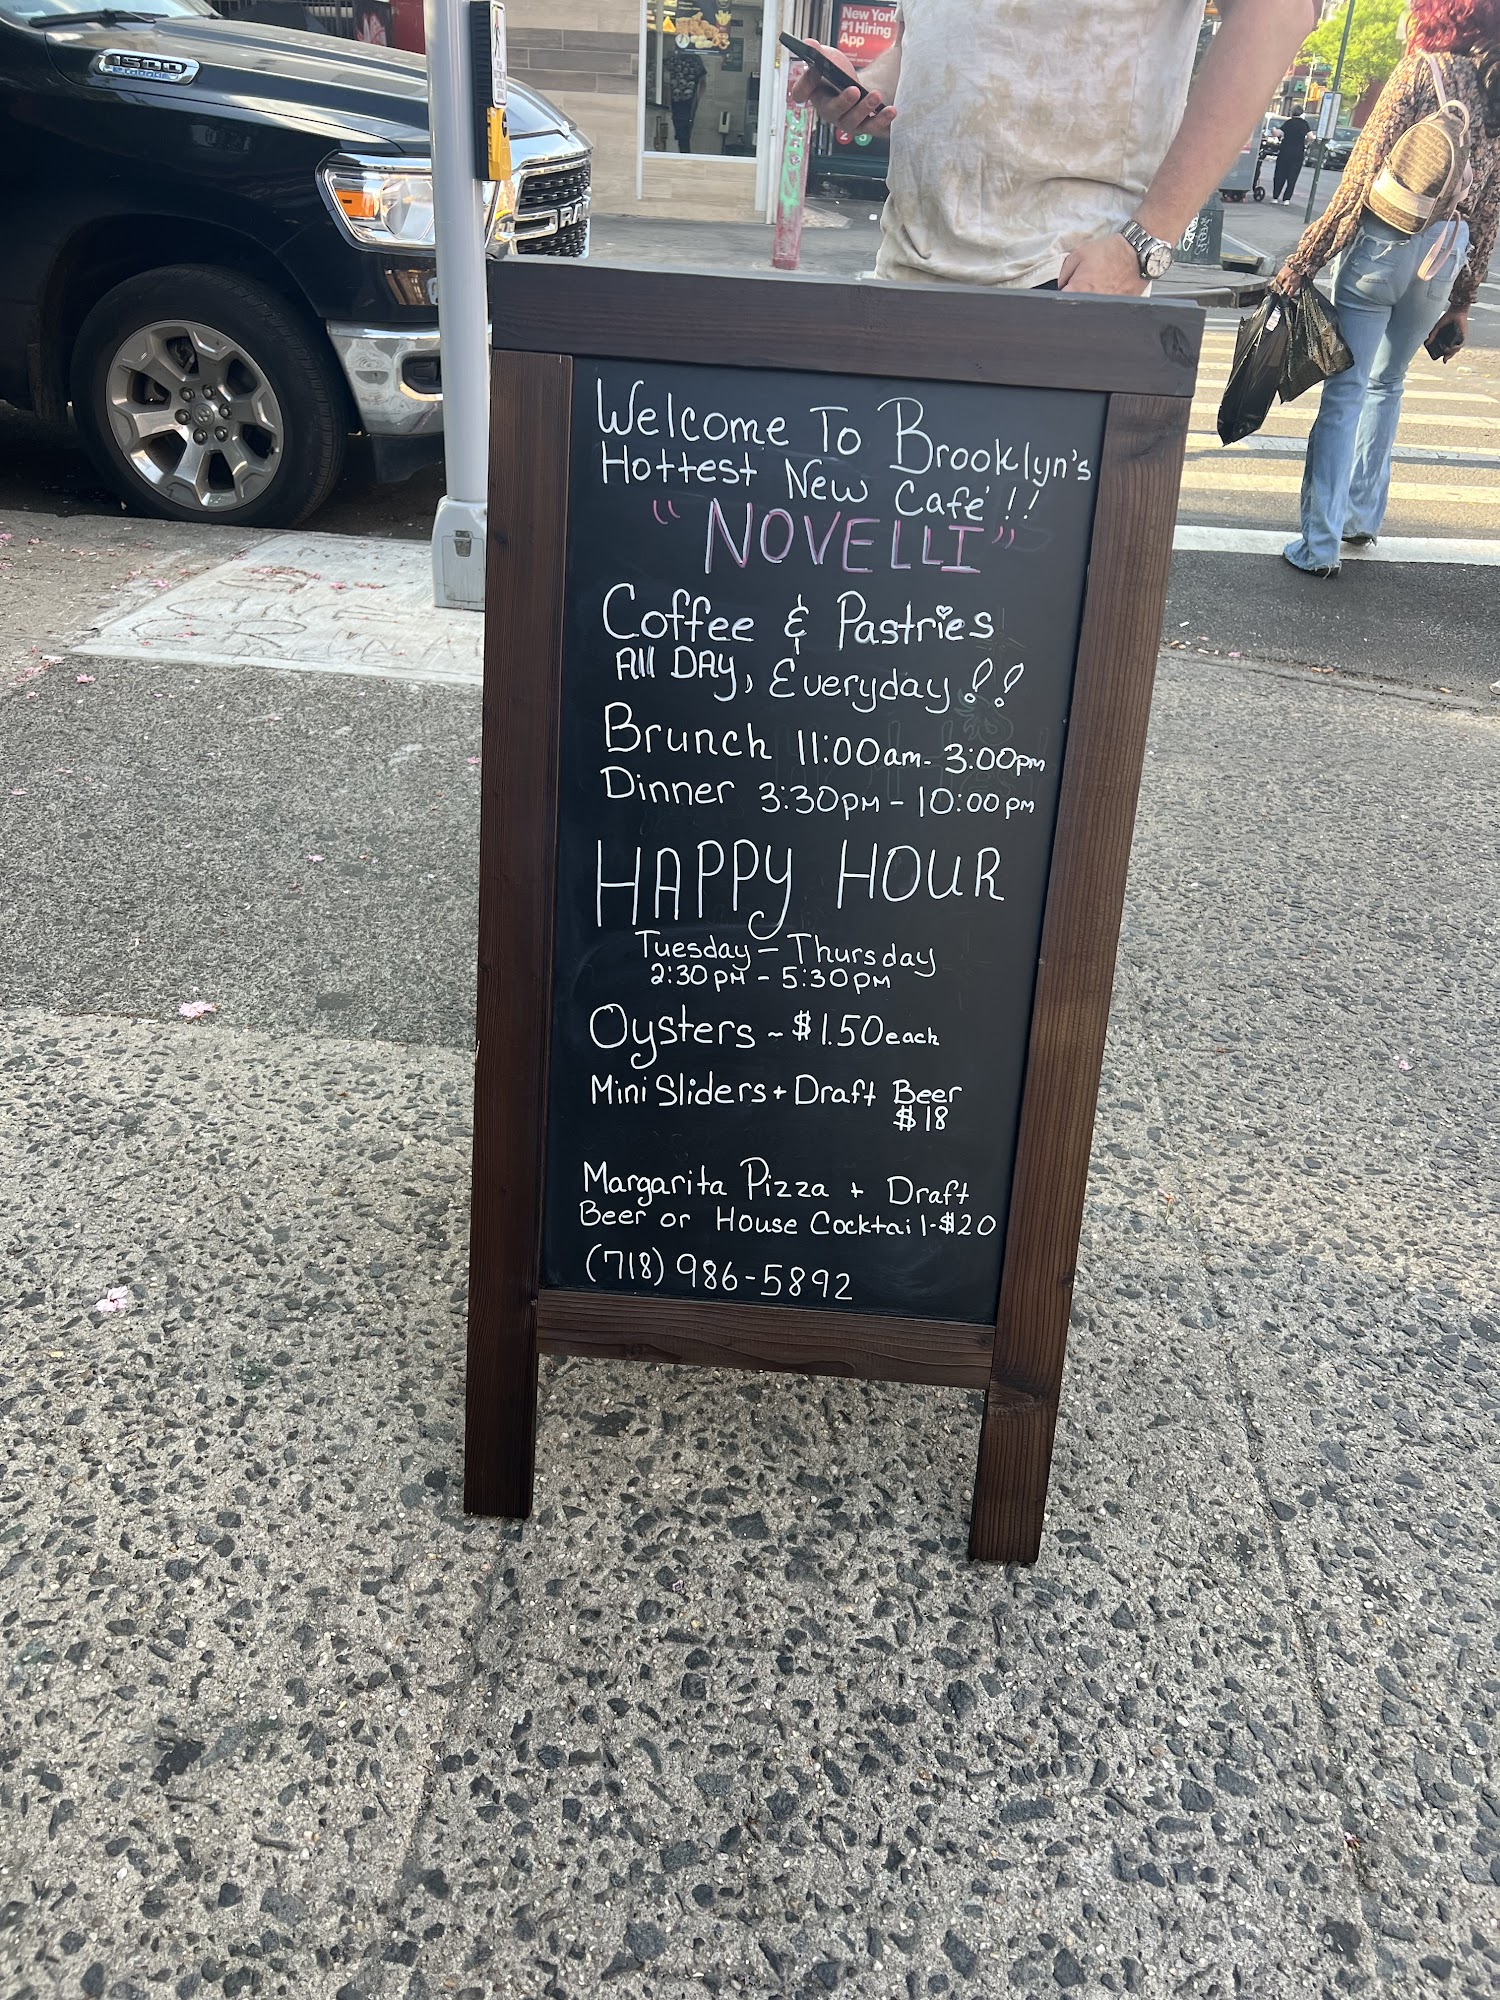 1500
RAM
New York
#1 Hiring
App
Welcome To Brooklyn's
Hottest New Café !!
"NOVELLI"
Coffee & Pastries
All DAY, Everyday !!
Brunch 11:00am - 3:00pm
Dinner 3:30PM - 10:00 PM
HAPPY HOUR
Tuesday - Thursday
2:30PM - 5:30PM
Oysters ~ $1.50 each
Mini Sliders + Draft Beer
$18
Margarita Pizza + Draft
Beer or House Cocktail - $20
(718) 986-5892